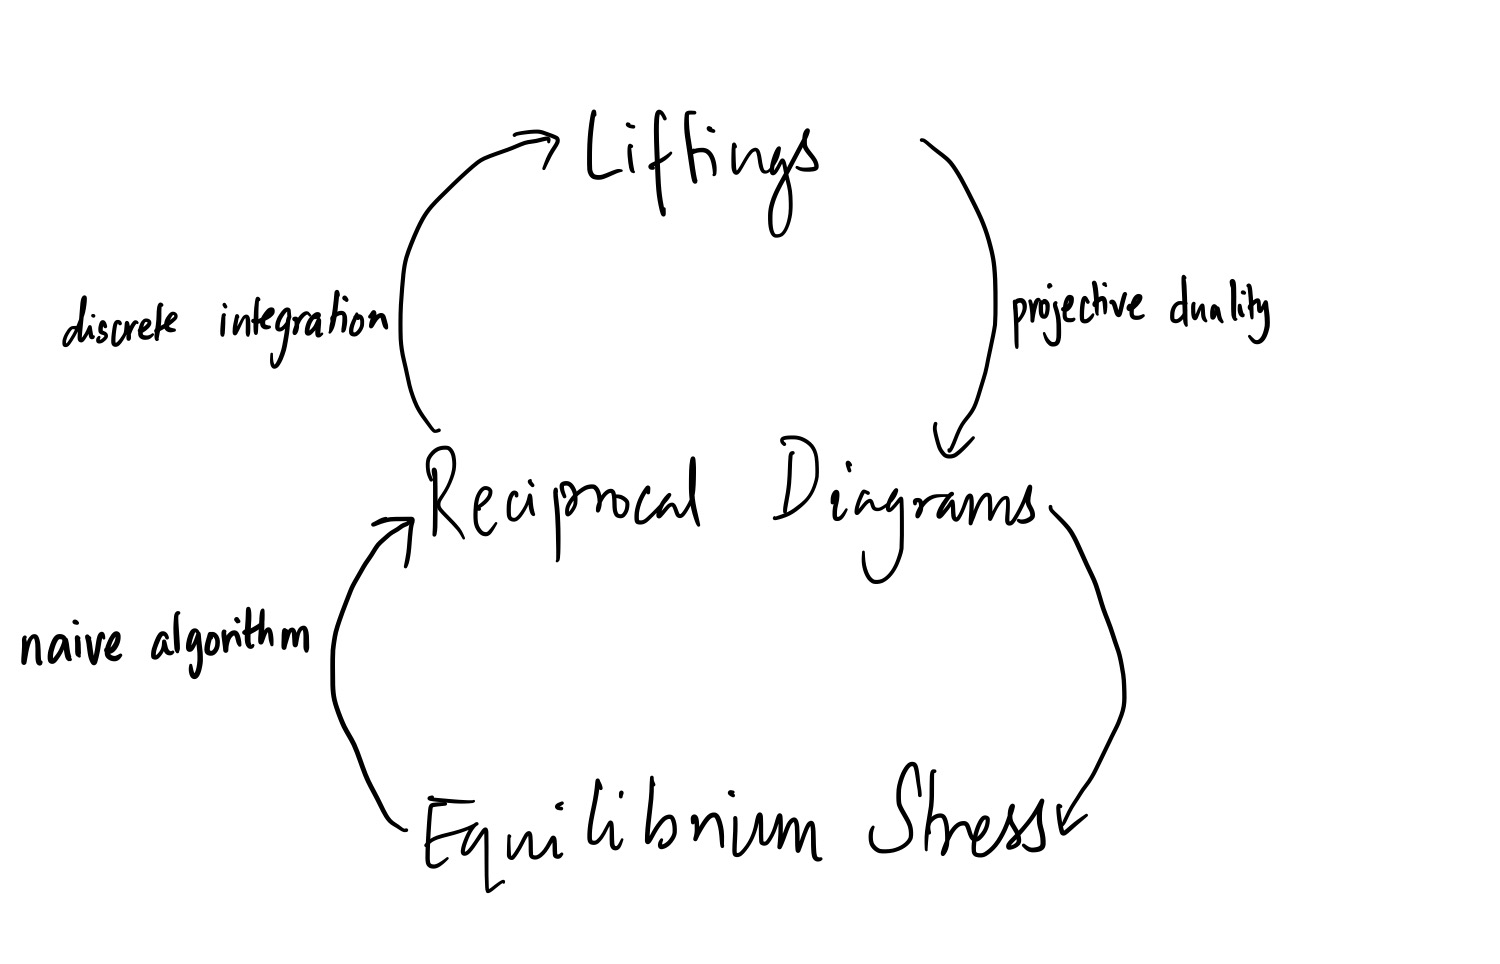 Liftings
discrete integration
projective duality
Reciprocal Diagrams
naive algorithm
Equilibrium Stress